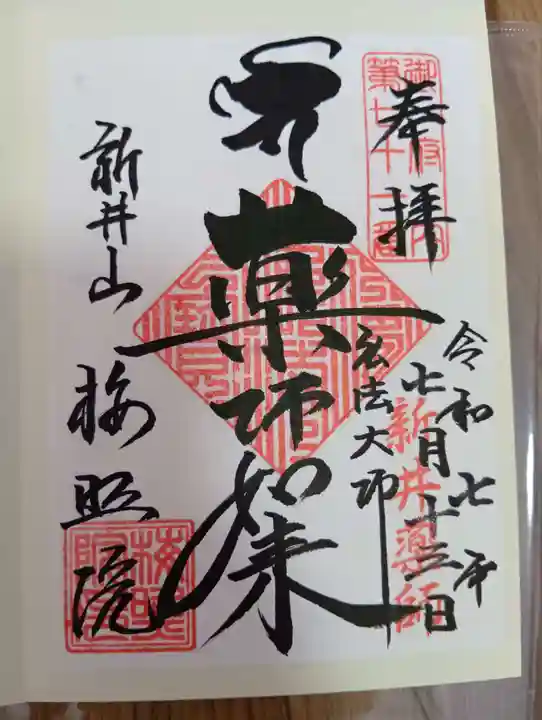 奉拝
御府内
第七十一番
令和七年
七月十三日
新井薬師
弘法大師
薬師如来
新井山
梅照院